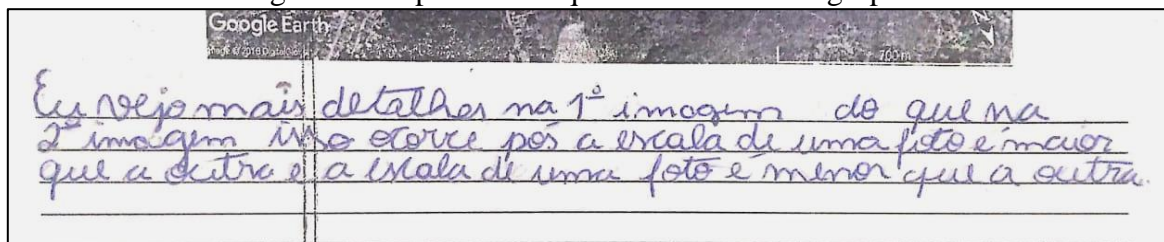 Google Earth
700 m
Eu vejo mais detalhes na 1º imagem do que na
2º imagem isso ocorre pós a escala de uma foto é maior
que a outra e a escala de uma foto é menor que a outra.